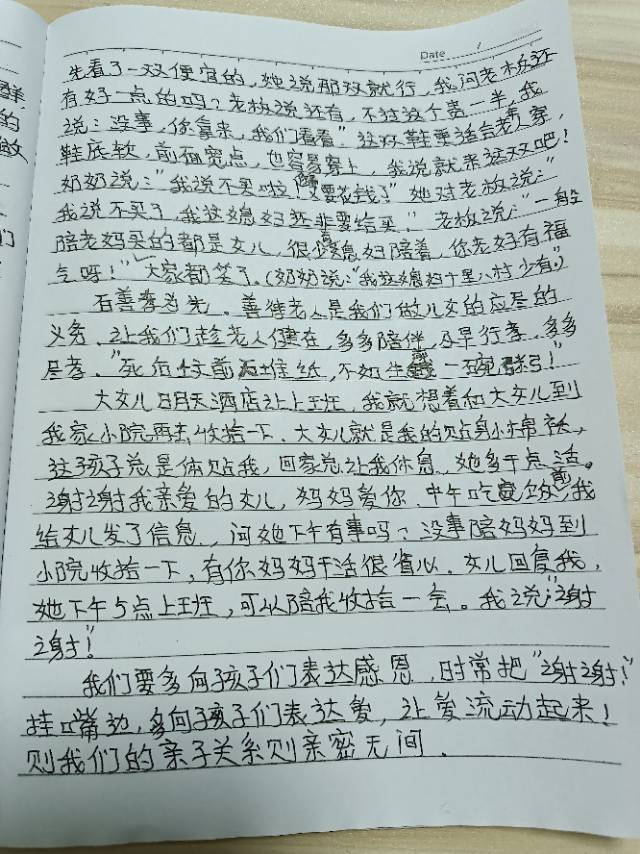 Date /
先看了一双便宜的，她说那双就行，我问老板还
有好一点的吗？老板说还有，不过这个贵一半，我
说：没事，你拿来，我们看看"这双鞋更适合老年穿，
鞋底软，前面宽点，也容易穿上，我说就来这双吧！
奶奶说："我说不买啦！又要花钱了"她对老板说："
我说不买了，我这媳妇还非要给买。"老板说："一般
陪老妈买的都是女儿，很少媳妇陪着，你老好有福
气呀！"大家都笑了。（奶奶说："我这媳妇十里八村少有。）
百善孝为先，善待老人是我们做儿女的应尽的
义务，让我们趁老人健在，多多陪伴，及早行孝，多多
尽孝，"死后坟前 堆纸，不如生 一碗 ！"
大女儿 天酒店让上班，我就想着和大女儿到
我家小院再去收拾一下，大女儿就是我的贴身小棉袄，
这孩子总是体贴我，回家总让我休息，她多干点活。
谢谢我亲爱的女儿，妈妈爱你，中午吃 饭 我
给女儿发了信息，问她下午有事吗？没事陪妈妈到
小院收拾一下，有你妈妈干活很省心，女儿回复我，
她下午5点上班，可以陪我收拾一会。我说："谢
谢！"
我们要多向孩子们表达感恩，时常把"谢谢！"
挂嘴边，多向孩子们表达爱，让爱流动起来！
则我们的亲子关系则亲密无间．
群
的
做
们